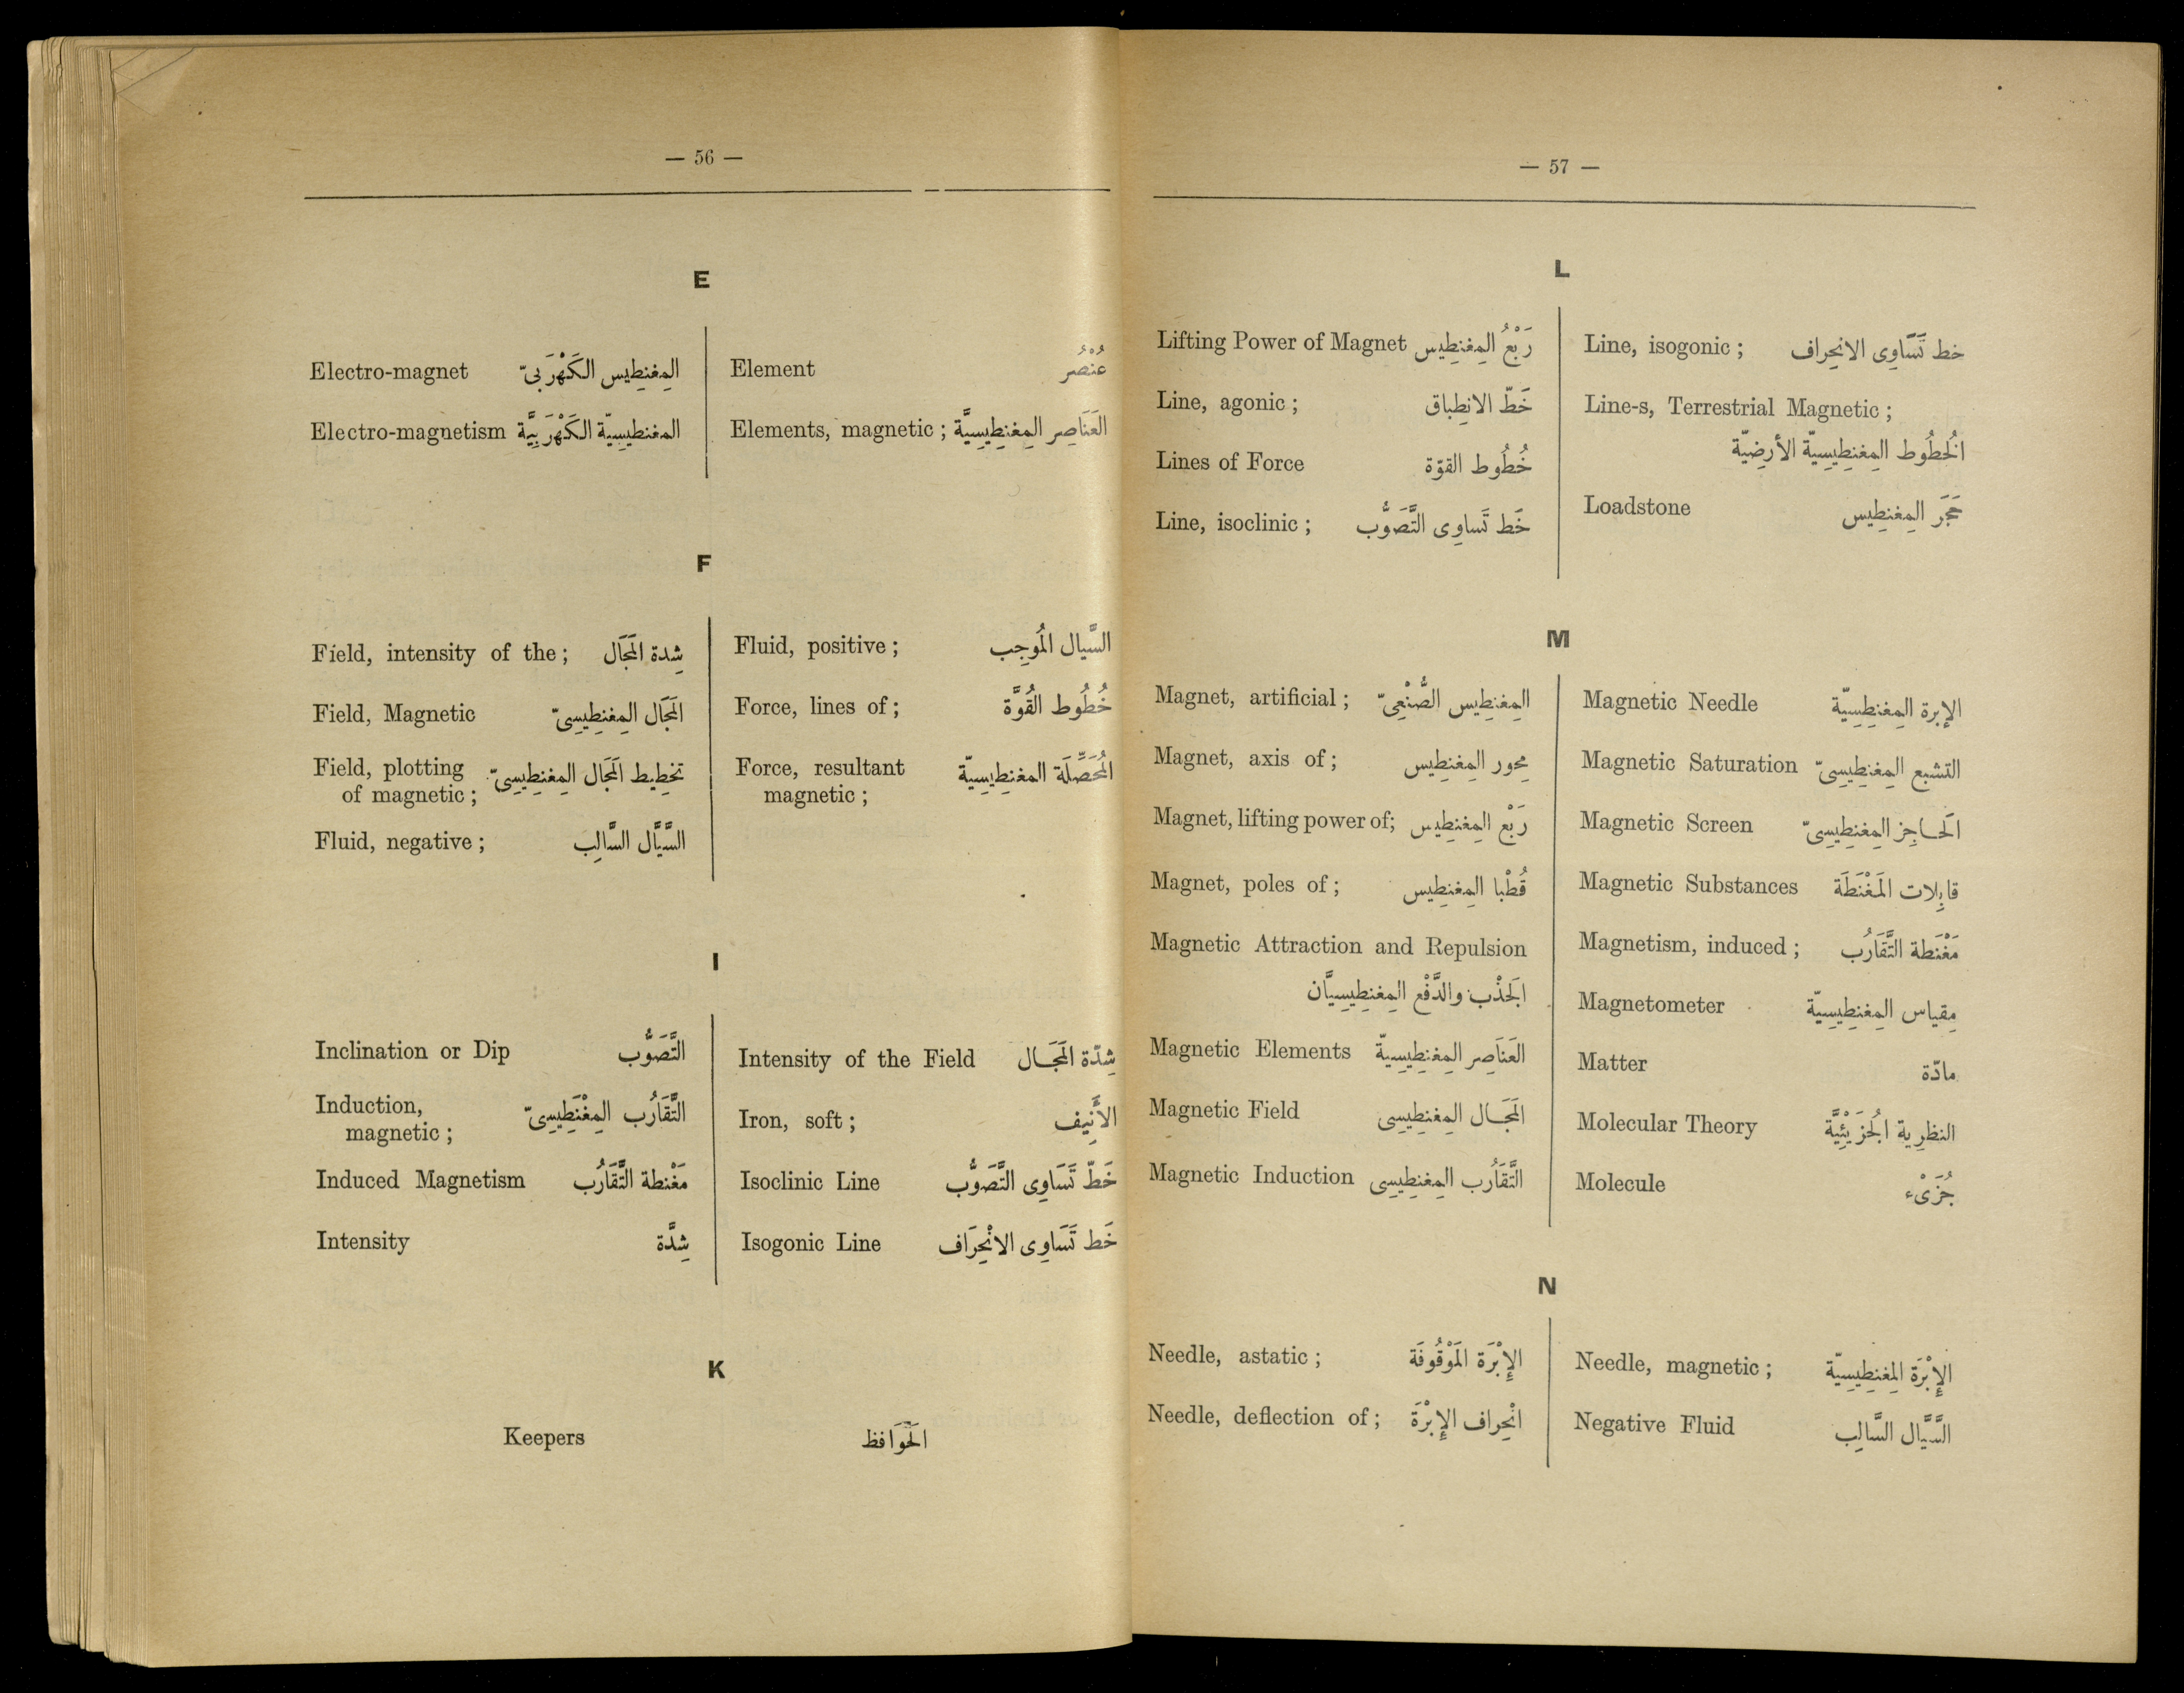 — 56 —
E
Electro-magnet المِغنِطِيس الكَهْرَبىّ
Electro-magnetism المغنطيسِيّة الكَهْرَبِيَّة
Element عُنْصُر
Elements, magnetic ; العَنَاصِر المِغنِطِيسِيَّة
F
Field, intensity of the ; شِدة المَجَال
Field, Magnetic المَجَال المِغنِطِيسِىّ
Field, plotting تخطِيط المَجَال المِغنِطِيسِىّ
of magnetic ;
Fluid, negative ; السَّيَّال السَّالِب
Fluid, positive ; السَّيال المُوجِب
Force, lines of ; خُطُوط القُوَّة
Force, resultant المُحَصِّلَة المغنِطِيسِيّة
magnetic ;
I
Inclination or Dip التَّصَوُّب
Induction, التَّقَارُب المِغْنَطِيسِىّ
magnetic ;
Induced Magnetism مَغْنطة التَّقَارُب
Intensity شِدَّة
Intensity of the Field شِدّة المَجَال
Iron, soft ; الأَنِيف
Isoclinic Line خَطّ تَسَاوِى التَّصَوُّب
Isogonic Line خَط تَسَاوِى الانْحِرَاف
K
Keepers الحَوَافظ
— 57 —
L
Lifting Power of Magnet رَبْعُ المِغنِطِيس
Line, agonic ; خَطّ الانِطباق
Lines of Force خُطُوط القوّة
Line, isoclinic ; خَط تَساوِى التَّصَوُّب
Line, isogonic ; خط تَسَاوِى الانحِراف
Line-s, Terrestrial Magnetic ;
الخُطُوط المِغنِطِيسِيّة الأرضِيّة
Loadstone حَجَر المِغنِطِيس
M
Magnet, artificial ; المِغنِطِيس الصُّنْعِىّ
Magnet, axis of ; مِحور المِغنِطِيس
Magnet, lifting power of; رَبْع المِغنِطِيس
Magnet, poles of ; قُطْبا المِغنِطِيس
Magnetic Attraction and Repulsion
الجَذْب والدَّفْع المِغنِطِيسِيَّان
Magnetic Elements العَنَاصِر المِغنِطِيسِيّة
Magnetic Field المَجَال المِغنِطِيسِى
Magnetic Induction التَّقَارُب المِغنِطِيسِى
Magnetic Needle الإبرة المِغنِطِيسِيّة
Magnetic Saturation التشبع المِغنِطِيسِىّ
Magnetic Screen الحَاجِز المِغنِطِيسِىّ
Magnetic Substances قابِلات المَغْنَطَة
Magnetism, induced ; مَغْنَطة التَّقَارُب
Magnetometer مِقياس المِغنِطِيسِيّة
Matter مادّة
Molecular Theory النظرِية الجُزَيْئِيَّة
Molecule جُزَىْء
N
Needle, astatic ; الإِبْرَة المَوْقُوفَة
Needle, deflection of ; انْحِراف الإِبْرَة
Needle, magnetic ; الإِبْرَة المِغنِطِيسِيّة
Negative Fluid السَّيَّال السَّالِب